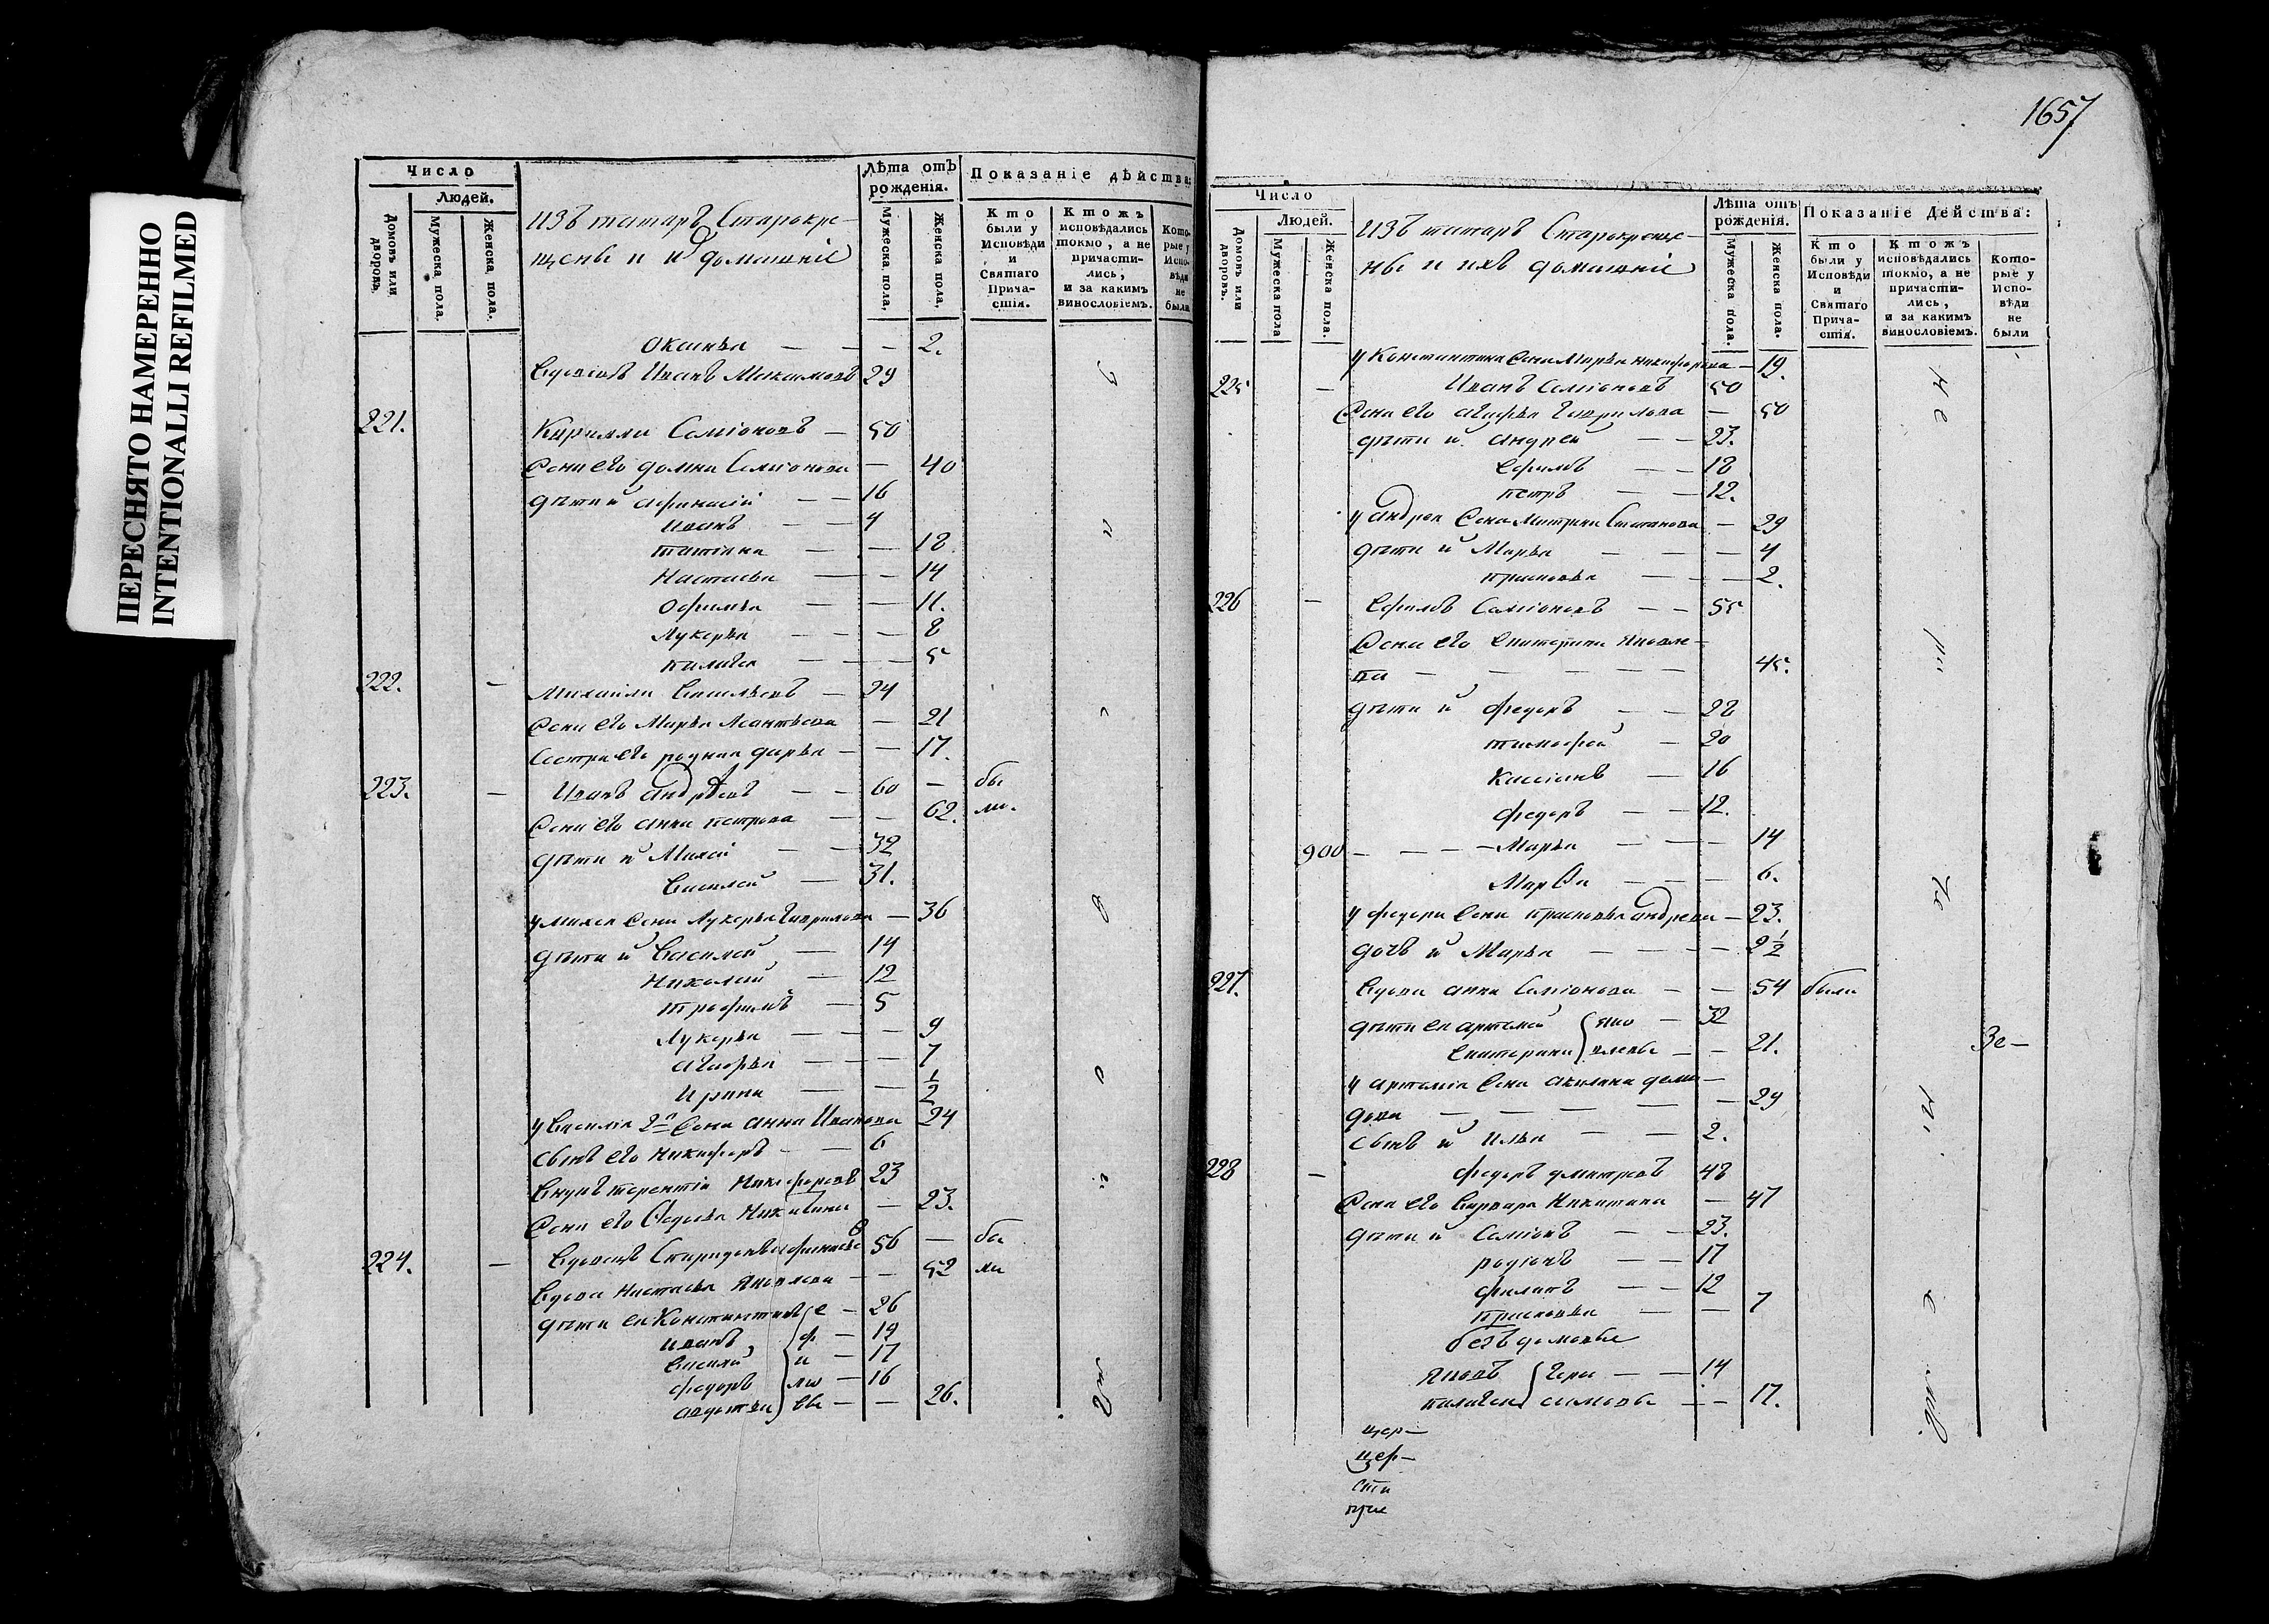 ПЕРЕСНЯТО НАМЕРЕННО
INTENTIONALLI REFILMED
Число
Людей.
Домовъ или дворовъ.
Мужеска пола.
Женска пола.
изъ татаръ Старокре-
щены и и домашніе
Лѣта отъ
рожденія.
Мужеска пола,
Женска пола,
Показаніе дѣйства:
Кто
были у
Исповѣди
и
Святаго
Прича-
стія.
Ктожъ
исповѣдались
токмо, а не
причасти-
лись,
и за какимъ
винословіемъ.
Кото-
рые у
Испо-
вѣди
не
были
Оксинья — — — 2.
Вдовецъ Иванъ Максимовъ 29
221. Кирилли Семіоновъ — 50
Жена его домна Семіонова — 40
дѣти и Афонасій — — 16
Иванъ — — 4
татіяна — — 18
Настасья — — 14
Офимья — — 11.
Лукерья — — — 8
палагея — — — 5
222. — Михаила Васильевъ — 24
Жена его Марья Леонтьева — 21
Сестра его родная дарья — — 17.
223. — Иванъ Андрѣевъ — — 60 — бы
Жена его анна петрова — — 62. ли.
дѣти и Михей — — 32
Василей — 31.
у Михея Жена Лукерья Гаврилова — 36
дѣти и Василей — 14
Николай — 12
трофимъ — 5
Лукерья — — — 9
агафья — — — 7
Ирина — — 1/2
у Василія 2го Жена анна Иванова 24
Сынъ его Никифоръ — — 6
Внукъ терентіи Никифоровъ 23
Жена его Федосья Никитина — 23.
224. — Вдовецъ Спиридонъ афанасьевъ 56 — бы
Вдова Настасья Яковлева — — 52 ли
дѣти ея Константинъ е — 26
Иванъ, ф — 19
Василей и — 17
федоръ мо — 16
авдотья вы — — 26.
1657
Число
Людей.
Домовъ или дворовъ.
Мужеска пола
Женска пола.
изъ татаръ Старокреще-
ны и ихъ домашніе
Лѣта отъ
рожденія.
Мужеска пола.
Женска пола.
Показаніе Дейсшва:
Кто
были у
Исповѣди
и
Святаго
Прича-
стія.
Ктожъ
исповѣдались
токмо, а не
причасти-
лись,
и за какимъ
винословіемъ.
Кото-
рые у
Испо-
вѣди
не
были
у Константина Жена Марья Никифорова — 19.
225 — Иванъ Семіоновъ 50
Жена его агафья Гаврилова — 50
дѣти и Андрей — — 23.
Ефимъ — — 18
петръ — — 12.
у Андрея Жена Матрена Степанова — 29
дѣти и Марья — — — 4
прасковья — — — 2.
226 — Ефимъ Семіоновъ — — 55
Жена его Екатерина Яковле-
ва — — — — — 45.
дѣти и федоръ — — 28
тимофей — 20
Кассіянъ — 16
федоръ — — 12.
900 — — — — Марья — — — 14
Марфа — — — 6.
у федора Жена прасковья Андреева — 23.
дочь и Марья — — — — 2 1/2
227. Вдова анна Семіонова — — 54 была
дѣти ея артемей Яко — 32
Екатерина влевы — — 21. Зе—
у артемія Жена акилина деми-
дова — — — — — 29
Сынъ и Илья — — 2.
228 — федоръ дмитревъ 48
Жена его Варвара Никитина — 47
дѣти и Семіонъ — — 23.
родіонъ — — 17
филатъ — — 12
прасковья — — 7
безъ домовые
Яковъ Гера — — 14
палагея симовы — — 17.